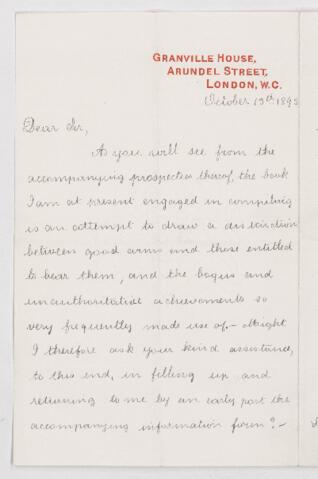 GRANVILLE HOUSE,
ARUNDEL STREET,
LONDON, W.C.
October 15th 1895
Dear Sir,
As you will see from the
accompanying prospectus thereof, the book
I am at present engaged in compiling
is an attempt to draw a distinction
between good arms and those entitled
to bear them, and the bogus and
unauthoritative achievements so
very frequently made use of. – Might
I therefore ask your kind assistance,
to this end, in filling up and
returning to me by an early post the
accompanying information form? –